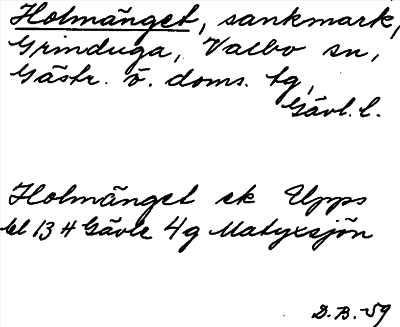 Holmänget, sankmark,
Grinduga, Valbo sn,
Gästr. ö. doms. tg,
Gävl. l.
Holmänget ek Upps
bl 13 H Gävle 4g Matyxsjön
D.B. -59